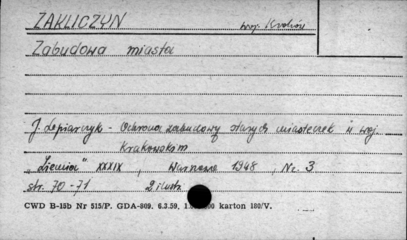 ZAKLICZYN woj. Kraków
Zabudowa miasta
J. Lepiarczyk - Ochrona zabudowy starych miasteczek w woj.
Krakowskim
„Ziemia" XXXIX, Warszawa 1948, Nr. 3
str. 70-71 2 ilustr.
CWD B-15b Nr 515/P. GDA-809. 6.3.59. karton 180/V.